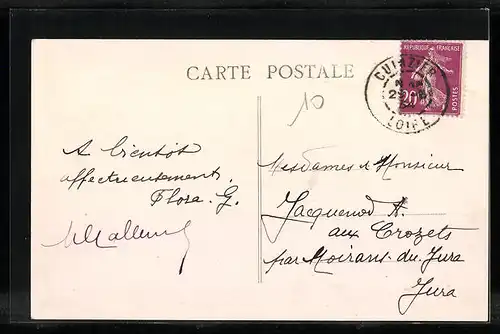 CARTE POSTALE
RÉPUBLIQUE FRANÇAISE
20
POSTES
CUINZIER
LOIRE
10
A bientôt
affectueusement.
Flora. G.
Mesdames & Monsieur
Jacquenod A.
aux Crozets
par Moirans-du-Jura
Jura